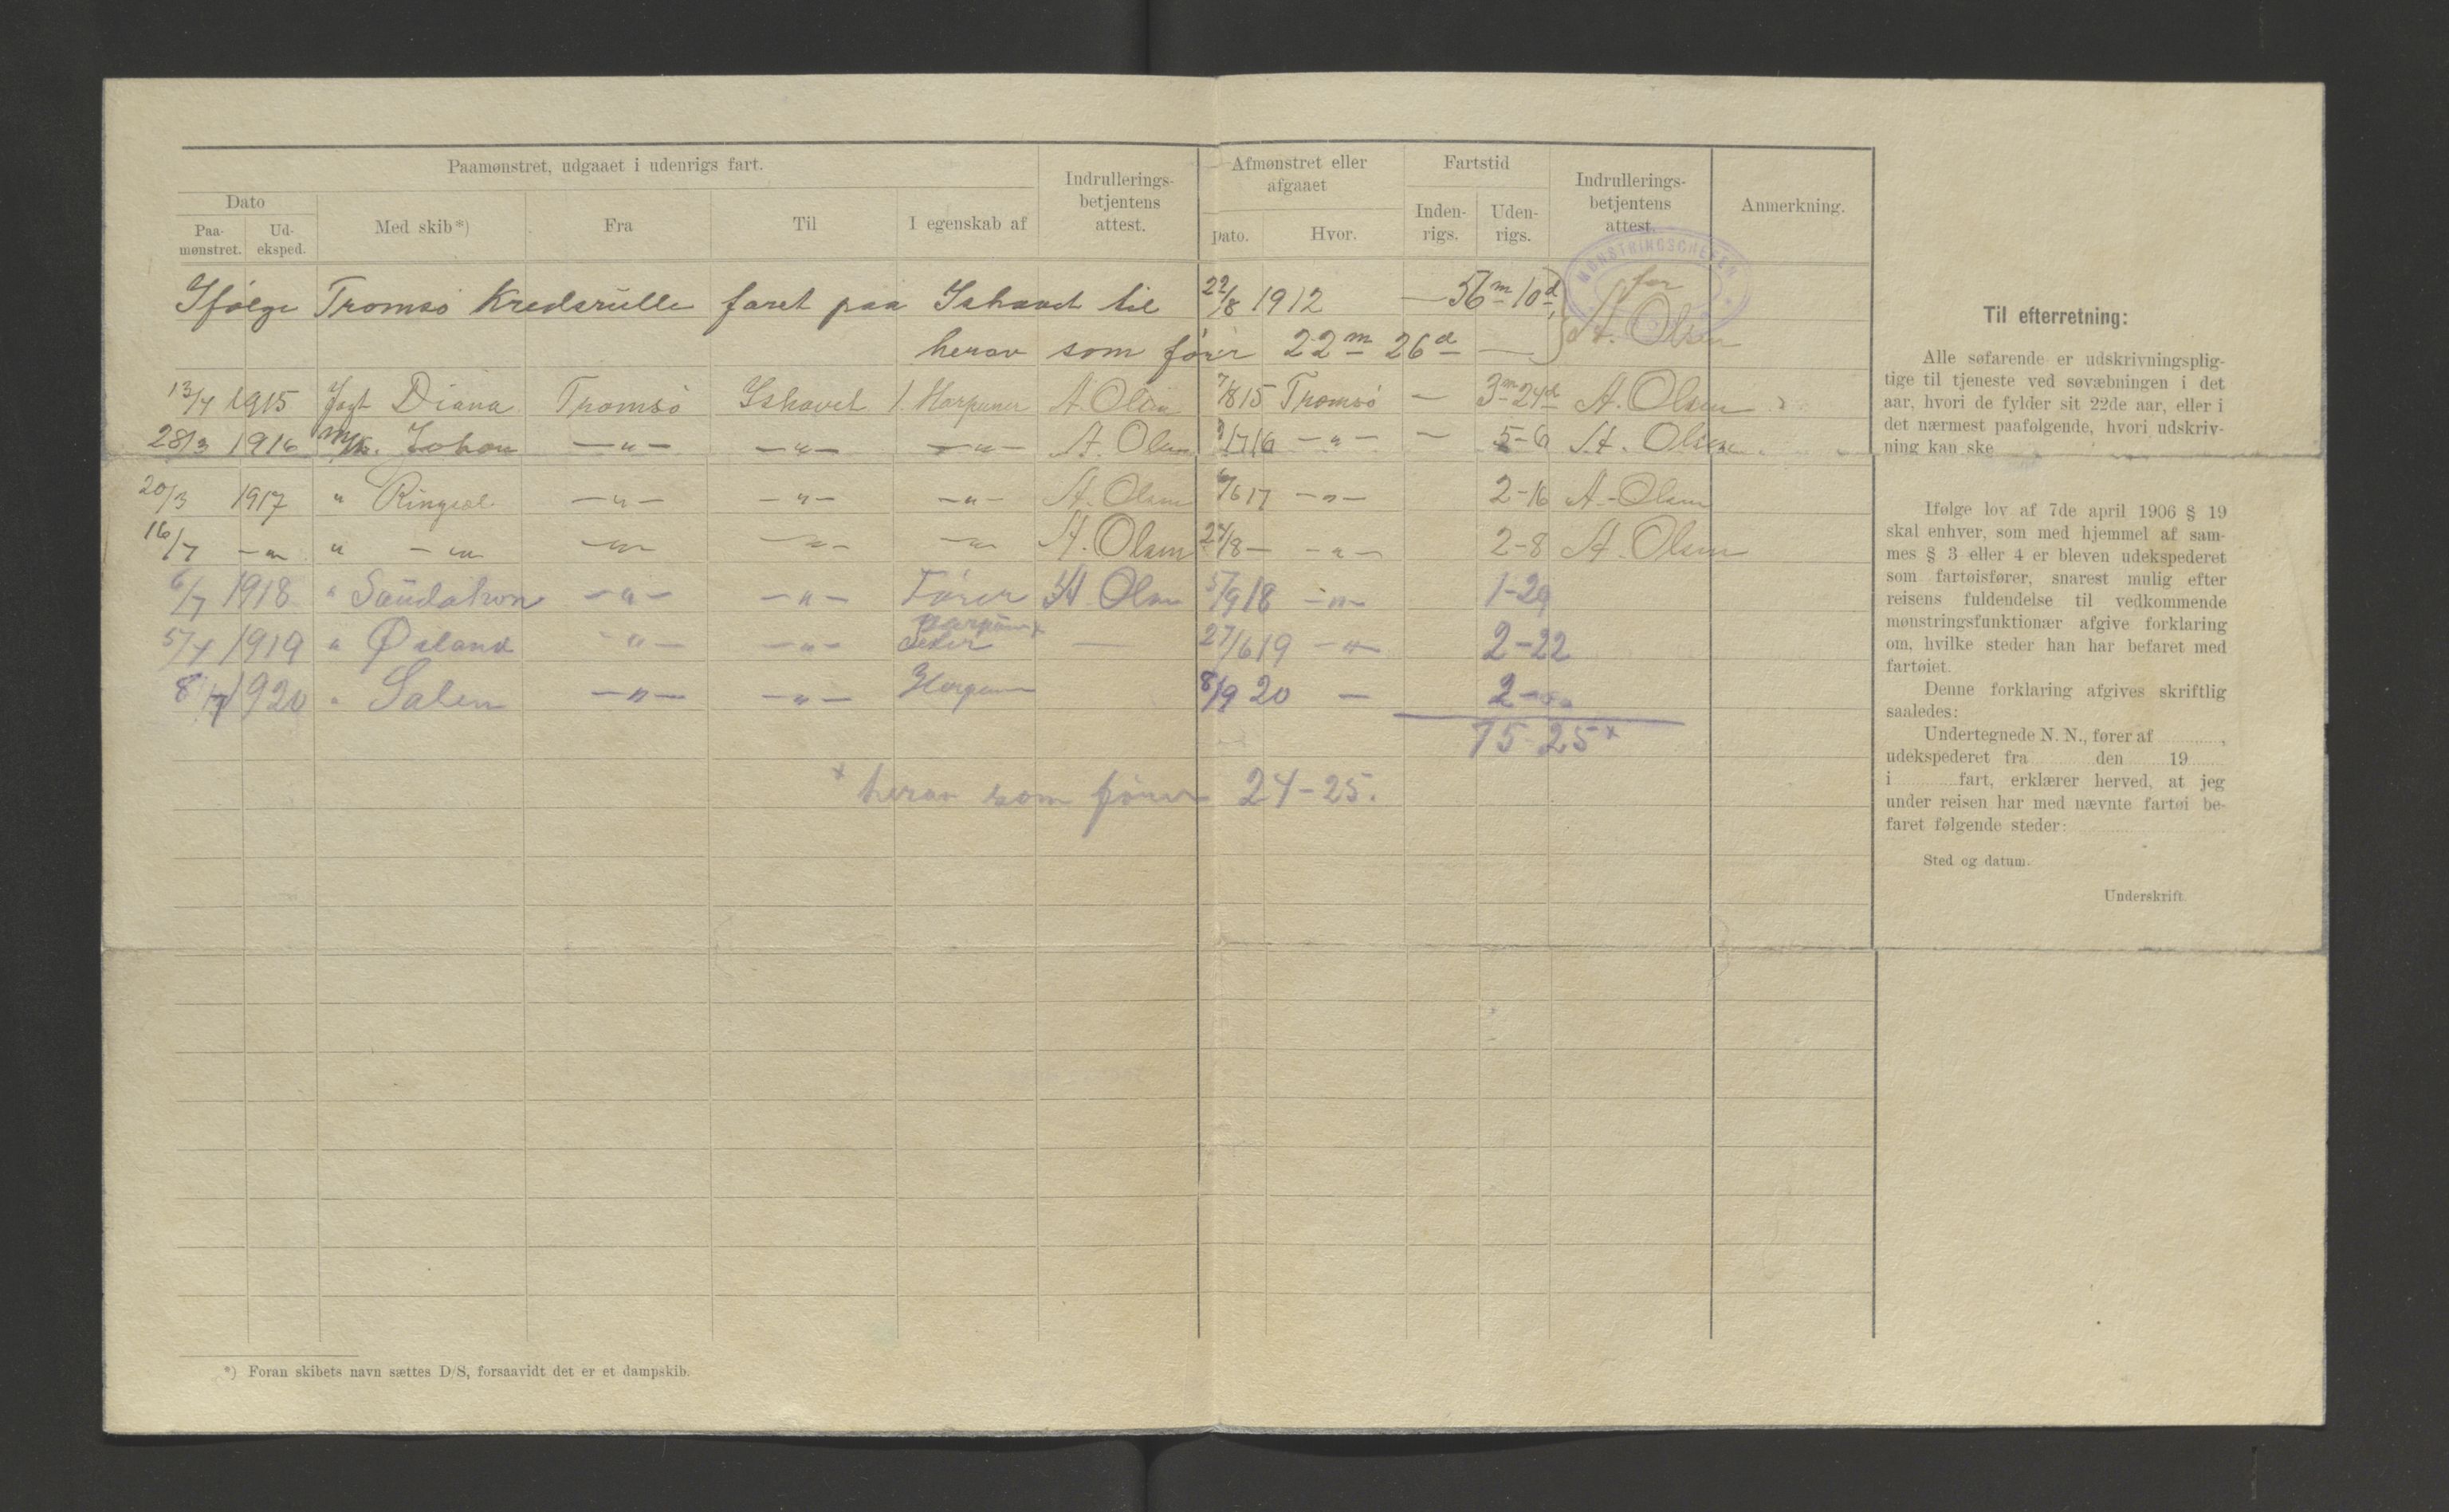 Paamønstret, udgaaet i udenrigs fart.
Dato
Paa-
mønstret.
Ud-
eksped.
Med skib*)
Fra
Til
I egenskab af
Indrullerings-
betjentens
attest.
Afmønstret eller
afgaaet
Dato.
Hvor.
Fartstid
Inden-
rigs.
Uden-
rigs.
Indrullerings-
betjentens
attest.
Anmerkning.
MØNSTRINGSCHEFEN
Ifølge Tromsø Kredsrulle faret paa Ishavet til 22/8 1912 — 56m 10d for
herav som fører 22m 26d — A. Olsen
13/4 1915 Jagt Diana Tromsø Ishavet Harpuner A. Olsen 7/8 15 Tromsø — 3m 24d A. Olsen
28/3 1916 M/k. Johan —"— —"— —"— A. Olsen —"— — 5-6 A. Olsen
20/3 1917 " Ringsel —"— —"— —"— A. Olsen 6/6 17 —"— 2-16 A. Olsen
16/7 —"— " —"— —"— —"— —"— A. Olsen 24/8 — —"— 2-8 A. Olsen
6/7 1918 " —"— —"— Fører A Olsen 5/9 18 —"— 1-29
5/4 1919 " —"— —"— — 27/6 19 —"— 2-22
8/7 1920 " Salen —"— —"— Harpuner 8/9 20 — 2-
75-25 x
x herav som fører 24-25.
*) Foran skibets navn sættes D/S, forsaavidt det er et dampskib.
Til efterretning:
Alle søfarende er udskrivningsplig-
tige til tjeneste ved søvæbningen i det
aar, hvori de fylder sit 22de aar, eller i
det nærmest paafølgende, hvori udskriv-
ning kan ske
Ifølge lov af 7de april 1906 § 19
skal enhver, som med hjemmel af sam-
mes § 3 eller 4 er bleven udekspederet
som fartøisfører, snarest mulig efter
reisens fuldendelse til vedkommende
mønstringsfunktionær afgive forklaring
om, hvilke steder han har befaret med
fartøiet.
Denne forklaring afgives skriftlig
saaledes:
Undertegnede N. N., fører af ............,
udekspederet fra ............ den ...... 19 ......
i ............ fart, erklærer herved, at jeg
under reisen har med nævnte fartøi be-
faret følgende steder: ............
Sted og datum.
Underskrift.